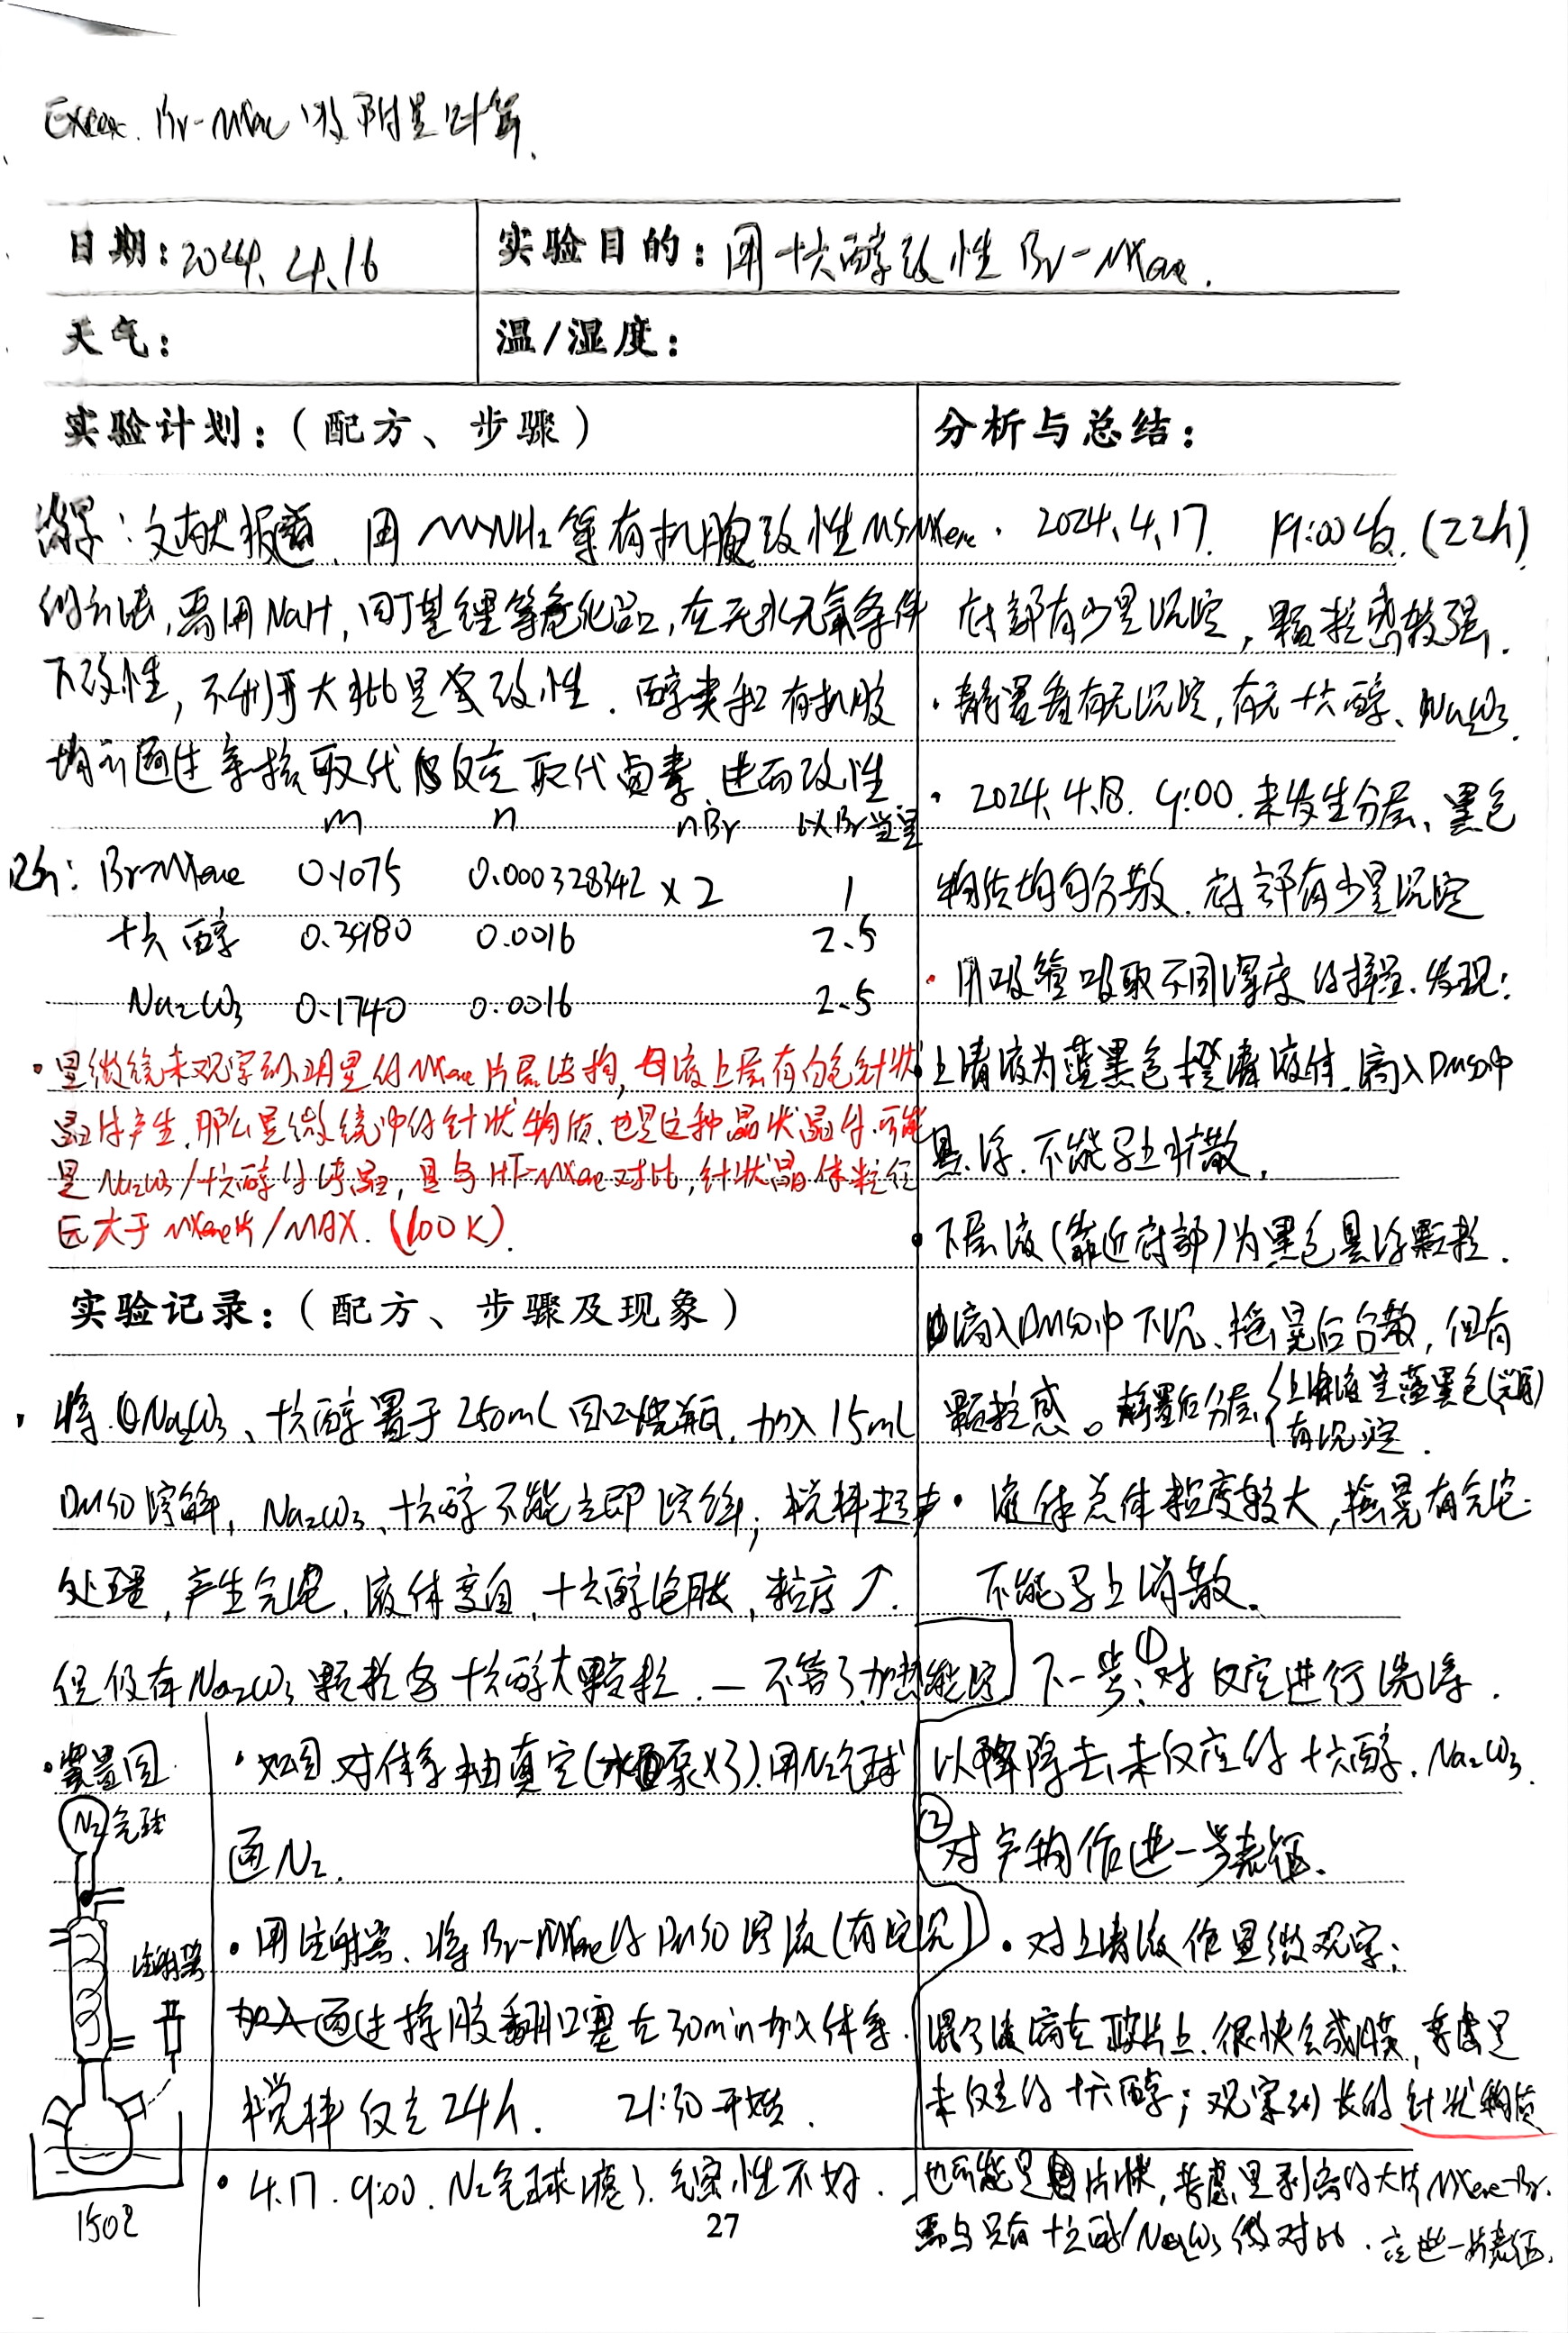 Br-MXene 以 附量计算.
日期: 2024.4.16
实验目的: 用十六醇改性 Br-MXene.
天气:
温/湿度:
实验计划:(配方、步骤)
: 文献报道, 用 NH₂ 等有机胺改性 MS-MXene
的方法,需用NaH,同丁基锂等危化品,在无水无氧条件
下改性,不利于大批量改性. 醇类和有机胺
均可通过亲核取代反应取代卤素,进而改性
m n nBr 以Br当量
Br-MXene 0.1075 0.000328342 ×2 1
十六醇 0.3980 0.0016 2.5
Na₂CO₃ 0.1740 0.0016 2.5
· 显微镜未观察到明显的MXene片层结构,母液上层有白色针状
晶体产生,那么显微镜中的针状物质,也是这种晶状晶体.可能
是Na₂CO₃/十六醇的结晶,且与HF-MXene对比,针状晶体粒径
远大于MXene片/MAX. (100K).
实验记录:(配方、步骤及现象)
· 将 Na₂CO₃、十六醇置于250mL四口烧瓶,加入15mL
DMSO溶解,Na₂CO₃、十六醇不能立即溶解;搅拌超声
处理,产生气泡,液体变白,十六醇泡胀,粒度↗.
但仍有Na₂CO₃颗粒含十六醇大颗粒.—不管了,加热能溶
· 装置图.
N₂ 气球
注射器
150℃
· 如图,对体系抽真空(水泵×3).用N₂气球
通N₂.
· 用注射器,将Br-MXene的DMSO溶液(有沉)
加入通过橡胶翻口塞在30min加入体系.
搅拌反应24h. 21:50开始.
· 4.17. 9:00. N₂气球瘪了,气密性不好.
27
分析与总结:
· 2024.4.17. 19:00收.(22h)
底部有少量沉淀,颗粒感较强.
· 静置看有无沉淀,有无十六醇、Na₂CO₃.
· 2024.4.18. 9:00.未发生分层、黑色
物质均匀分散.底部有少量沉淀
· 用吸管吸取不同深度的样品.发现:
上清液为蓝黑色澄清液体,滴入DMSO中
悬浮.不能马上扩散.
· 下层液(靠近底部)为黑色悬浮颗粒.
滴入DMSO中下沉、摇晃后分散,但有
颗粒感。静置后分层{上清液呈蓝黑色
有沉淀.
· 液体总体粒度较大,摇晃有气泡.
不能马上消散。
下一步:①对反应进行洗涤.
以除去未反应的十六醇.Na₂CO₃.
②对产物作进一步表征.
· 对上清液作显微观察:
混合液滴在玻片上.很快会成膜,考虑是
未反应的十六醇;观察到长的针状物质
也可能是片状,考虑是剥离的大片MXene-Br.
需与只有十六醇/Na₂CO₃做对比.应进一步表征.